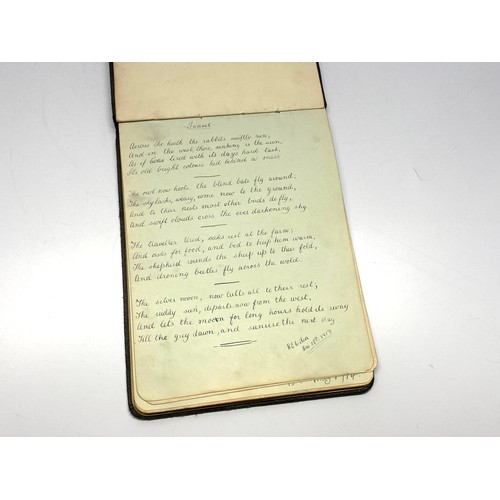 -Sunset-
Across the heath the rabbits swiftly run,
And in the west there, sinking is the sun,
As if twas tired with its days hard task,
Its old bright colours hid behind a mask
The owl now hoots the blind bats fly around;
The skylark, weary, come now to the ground,
And to their nests most other birds do fly,
And swift clouds cross the ever darkening sky
The traveller tired, seeks rest at the farm;
And asks for food, and bed to keep him warm,
The shepherd rounds the sheep up to their fold,
And droning beetles fly across the wold.
The silver moon, now lulls all to their rest,
The ruddy sun, departs now from the west,
And lets the moon for long hours hold its sway
Till the grey dawn, and sunrise the next day